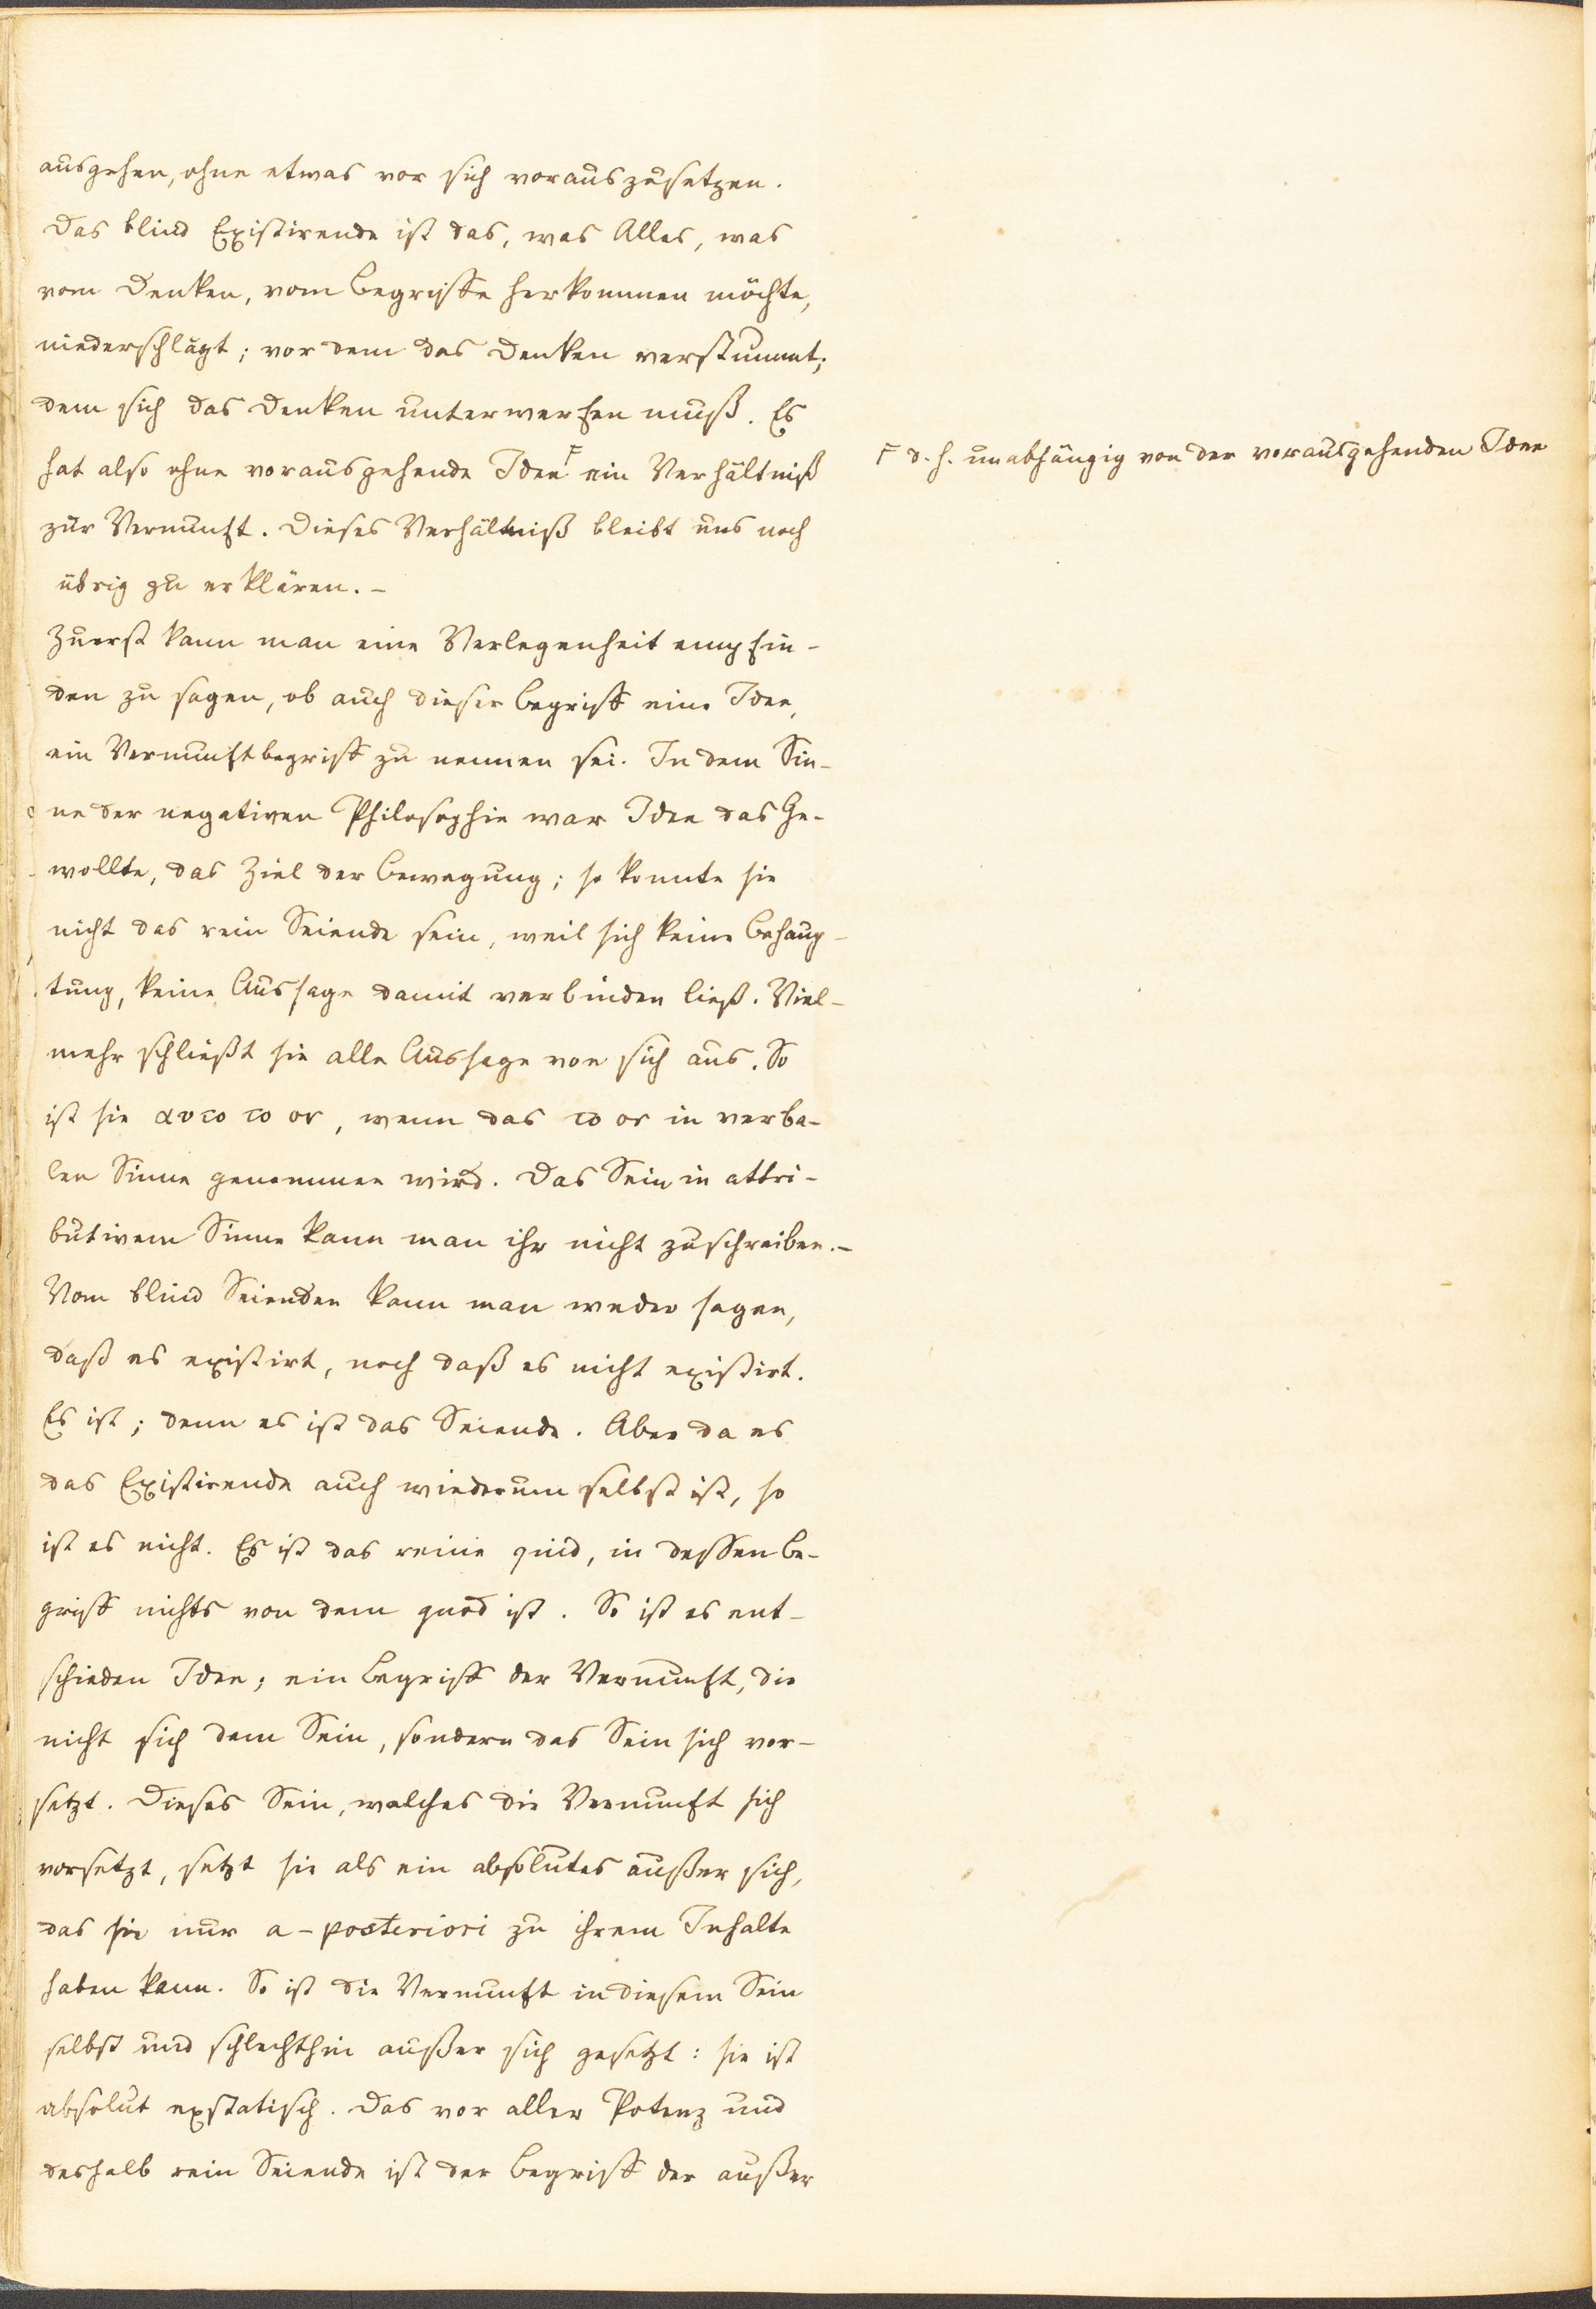 ausgehen, ohne etwas vor sich vorauszusetzen.
Das blind Existirende ist das, was Alles, was
vom Denken, vom Begriffe herkommen möchte,
niederschlägt; vor dem das Denken verstummt;
dem sich das Denken unterwerfen muß. Es
hat also ohne vorausgehende Idee F ein Verhältniß
F d. h. unabhängig von der vorausgehenden Idee
zur Vernunft. Dieses Verhältniß bleibt uns noch
übrig zu erklären. –
Zuerst kann man eine Verlegenheit empfin-
den zu sagen, ob auch dieser Begriff eine Idee,
ein Vernunftbegriff zu nennen sei. In dem Sin-
ne der negativen Philosophie war Idee das Ge-
wollte, das Ziel der Bewegung; so konnte sie
nicht das rein Seiende sein, weil sich keine Behaup-
tung, keine Aussage damit verbinden ließ. Viel-
mehr schließt sie alle Aussage von sich aus. So
ist sie αυτο το ον, wenn das το ον in verba-
len Sinne genommen wird. Das Sein in attri-
butivem Sinne kann man ihr nicht zuschreiben. –
Vom blind Seienden kann man weder sagen,
daß es existirt, noch daß es nicht existirt.
Es ist; denn es ist das Seiende. Aber da es
das Existirende auch wiederum selbst ist, so
ist es nicht. Es ist das reine quid, in dessen Be-
griff nichts von dem quod ist. So ist es ent-
schieden Idee; ein Begriff der Vernunft, die
nicht sich dem Sein, sondern das Sein sich vor-
setzt. Dieses Sein, welches die Vernunft sich
vorsetzt, setzt sie als ein absolutes außer sich,
das sie nur a-posteriori zu ihrem Inhalte
haben kann. So ist die Vernunft in diesem Sein
selbst und schlechthin außer sich gesetzt: sie ist
absolut exstatisch. Das vor aller Potenz und
deshalb rein Seiende ist der Begriff der außer